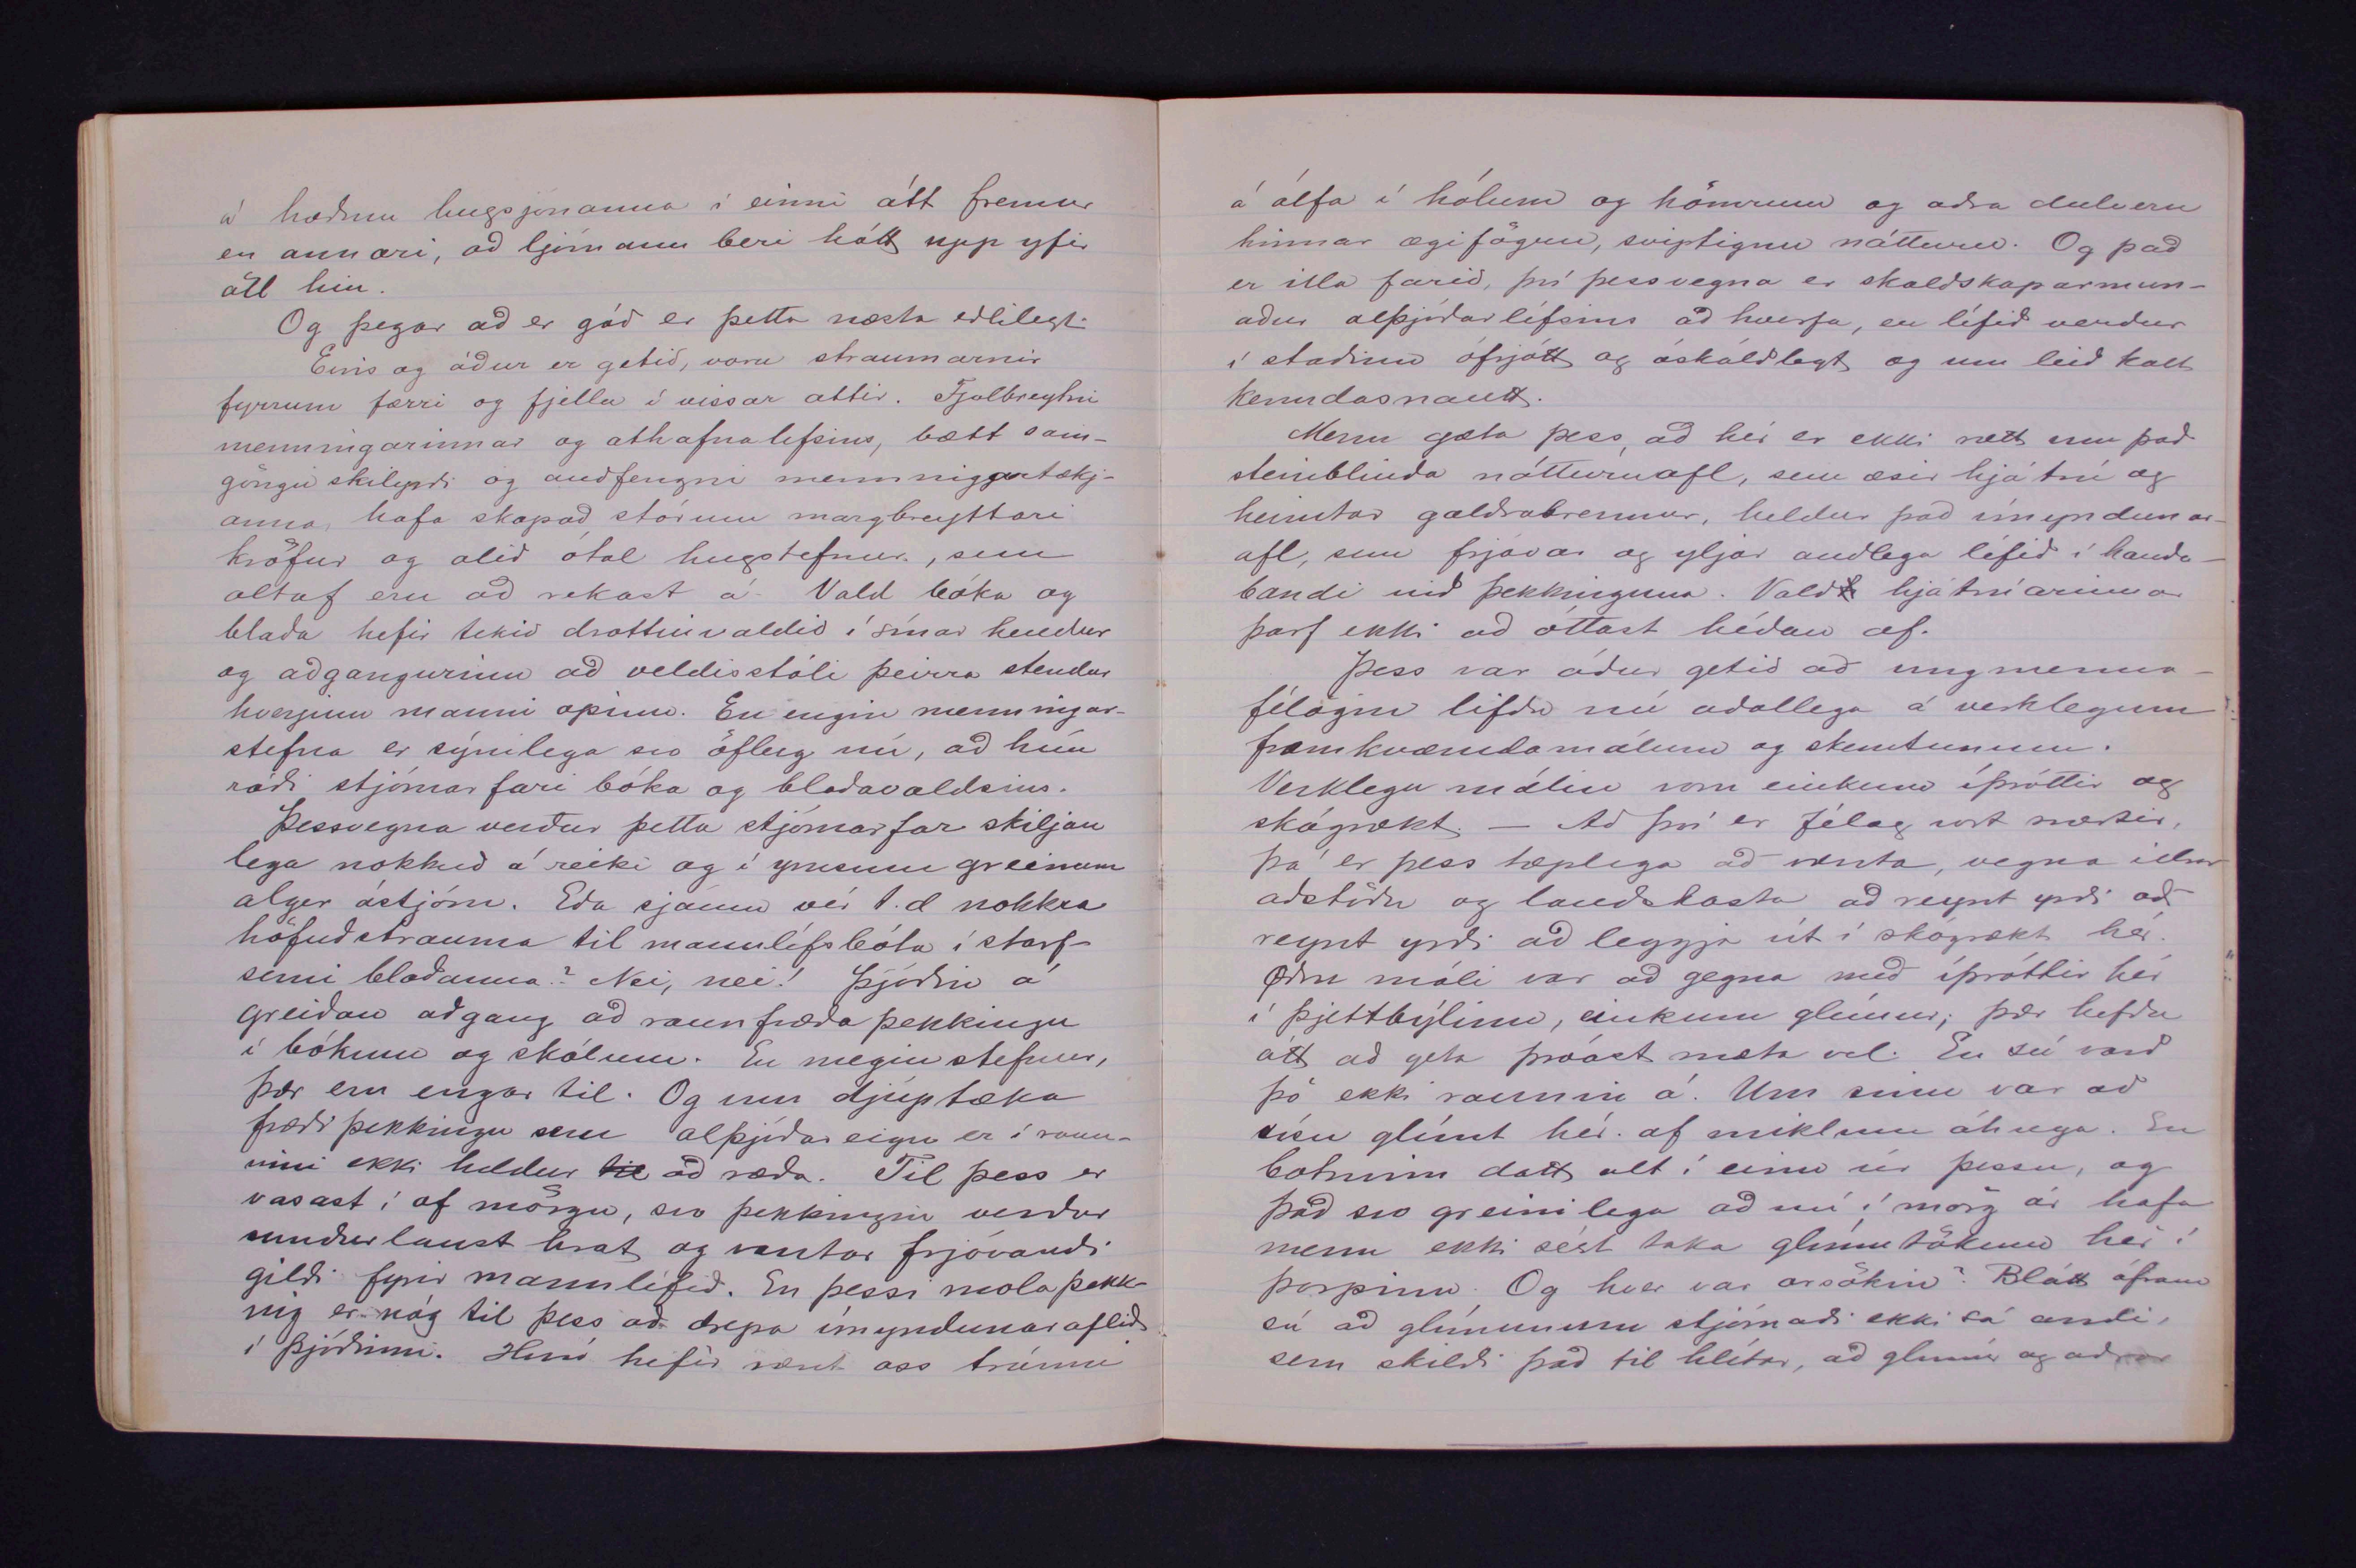 á hæðum hugsjónanna í einni átt fremur
en annari, að ljómann beri hátt upp yfir
öll hin.
Og þegar að er gáð er þetta næsta eðlilegt.
Eins og áður er getið, voru straumarnir
fyrrum færri og fjellu í vissar áttir. Fjölbreytni
menningarinnar og athafnalífsins, bætt sam-
göngu skilyrði og auðfengni menningartækj-
anna, hafa skapað stórum margbreyttari
kröfur og alið ótal hugstefnur, sem
altaf eru að rekast á. Vald bóka og
blaða hefir tekið drottinvaldið í sínar hendur
og aðgangurinn að veldisstóli þeirra stendur
hverjum manni opinn. En engin menningar-
stefna er sýnilega svo öflug nú, að hún
ráði stjórnarfari bóka og blaðavaldsins.
Þessvegna verður þetta stjórnarfar skiljan
lega nokkuð á reiki og í ymsum greinum
alger óstjórn. Eða sjáum vér t.d nokkra
höfuðstrauma til mannlífsbóta í starf-
semi blaðanna? Nei, nei! Þjóðin á
greiðan aðgang að raunfræða þekkingu
í bókum og skólum. En megin stefnur,
þær eru engar til. Og um djúptæka
fræði þekkingu sem alþjóðar eign er í raun-
inni ekki heldur til að ræða. Til þess er
vasast í of mörgu, svo þekkingin verður
sundurlaust hrat og vantar frjóvandi
gildi fyrir mannlífið. En þessi mola þekk-
ing er nóg til þess að drepa ímyndunaraflið
í þjóðinni. Hún hefir rænt oss trúnni
á álfa í hólum og hömrum og aðra dulveru
hinnar ægifögru, sviptignu náttúru. Og það
er illa farið, því þessvegna er skaldskaparmun-
aður alþjóðarlífsins að hverfa, en lífið verður
í staðinn ófrjótt og óskáldlegt og um leið kalt
kenndasnautt.
Menn gæta þess, að hér er ekki rætt um það
steinblinda náttúruafl, sem æsir hjátrú og
heimtar galdrabrennur, heldur það ímyndunar-
afl, sem frjóvar og yljar andlega lífið í handa-
bandi við þekkinguna. Vald hjátrúarinnar
þarf ekki að óttast héðan af.
Þess var áður getið að ungmenna-
félögin lifðu nú aðallega á verklegum
framkvæmdamálum og skemtunum.
Verklegu málin voru einkum íþróttir og
skógrækt. — Að því er félag vort snertir,
þá er þess tæplega að vænta, vegna illrar
aðstöðu og landskosta að reynt yrði að
reynt yrði að leggja út í skógrækt hér.
Öðru máli var að gegna með íþróttir hér
í þjettbýlinu, einkum glímur; þær hefðu
átt að geta þróast mæta vel. En sú varð
þó ekki raunin á. Um sinn var að
vísu glímt hér. af miklum áhuga. En
botninn datt alt í einu úr þessu, og
það svo greinilega að nú í mörg ár hafa
menn ekki sést taka glímutökum hér í
þorpinu. Og hver var orsökin? Blátt áfram
sú að glímunum stjórnaði ekki sá andi,
sem skildi það til hlítar, að glímur og aðrar